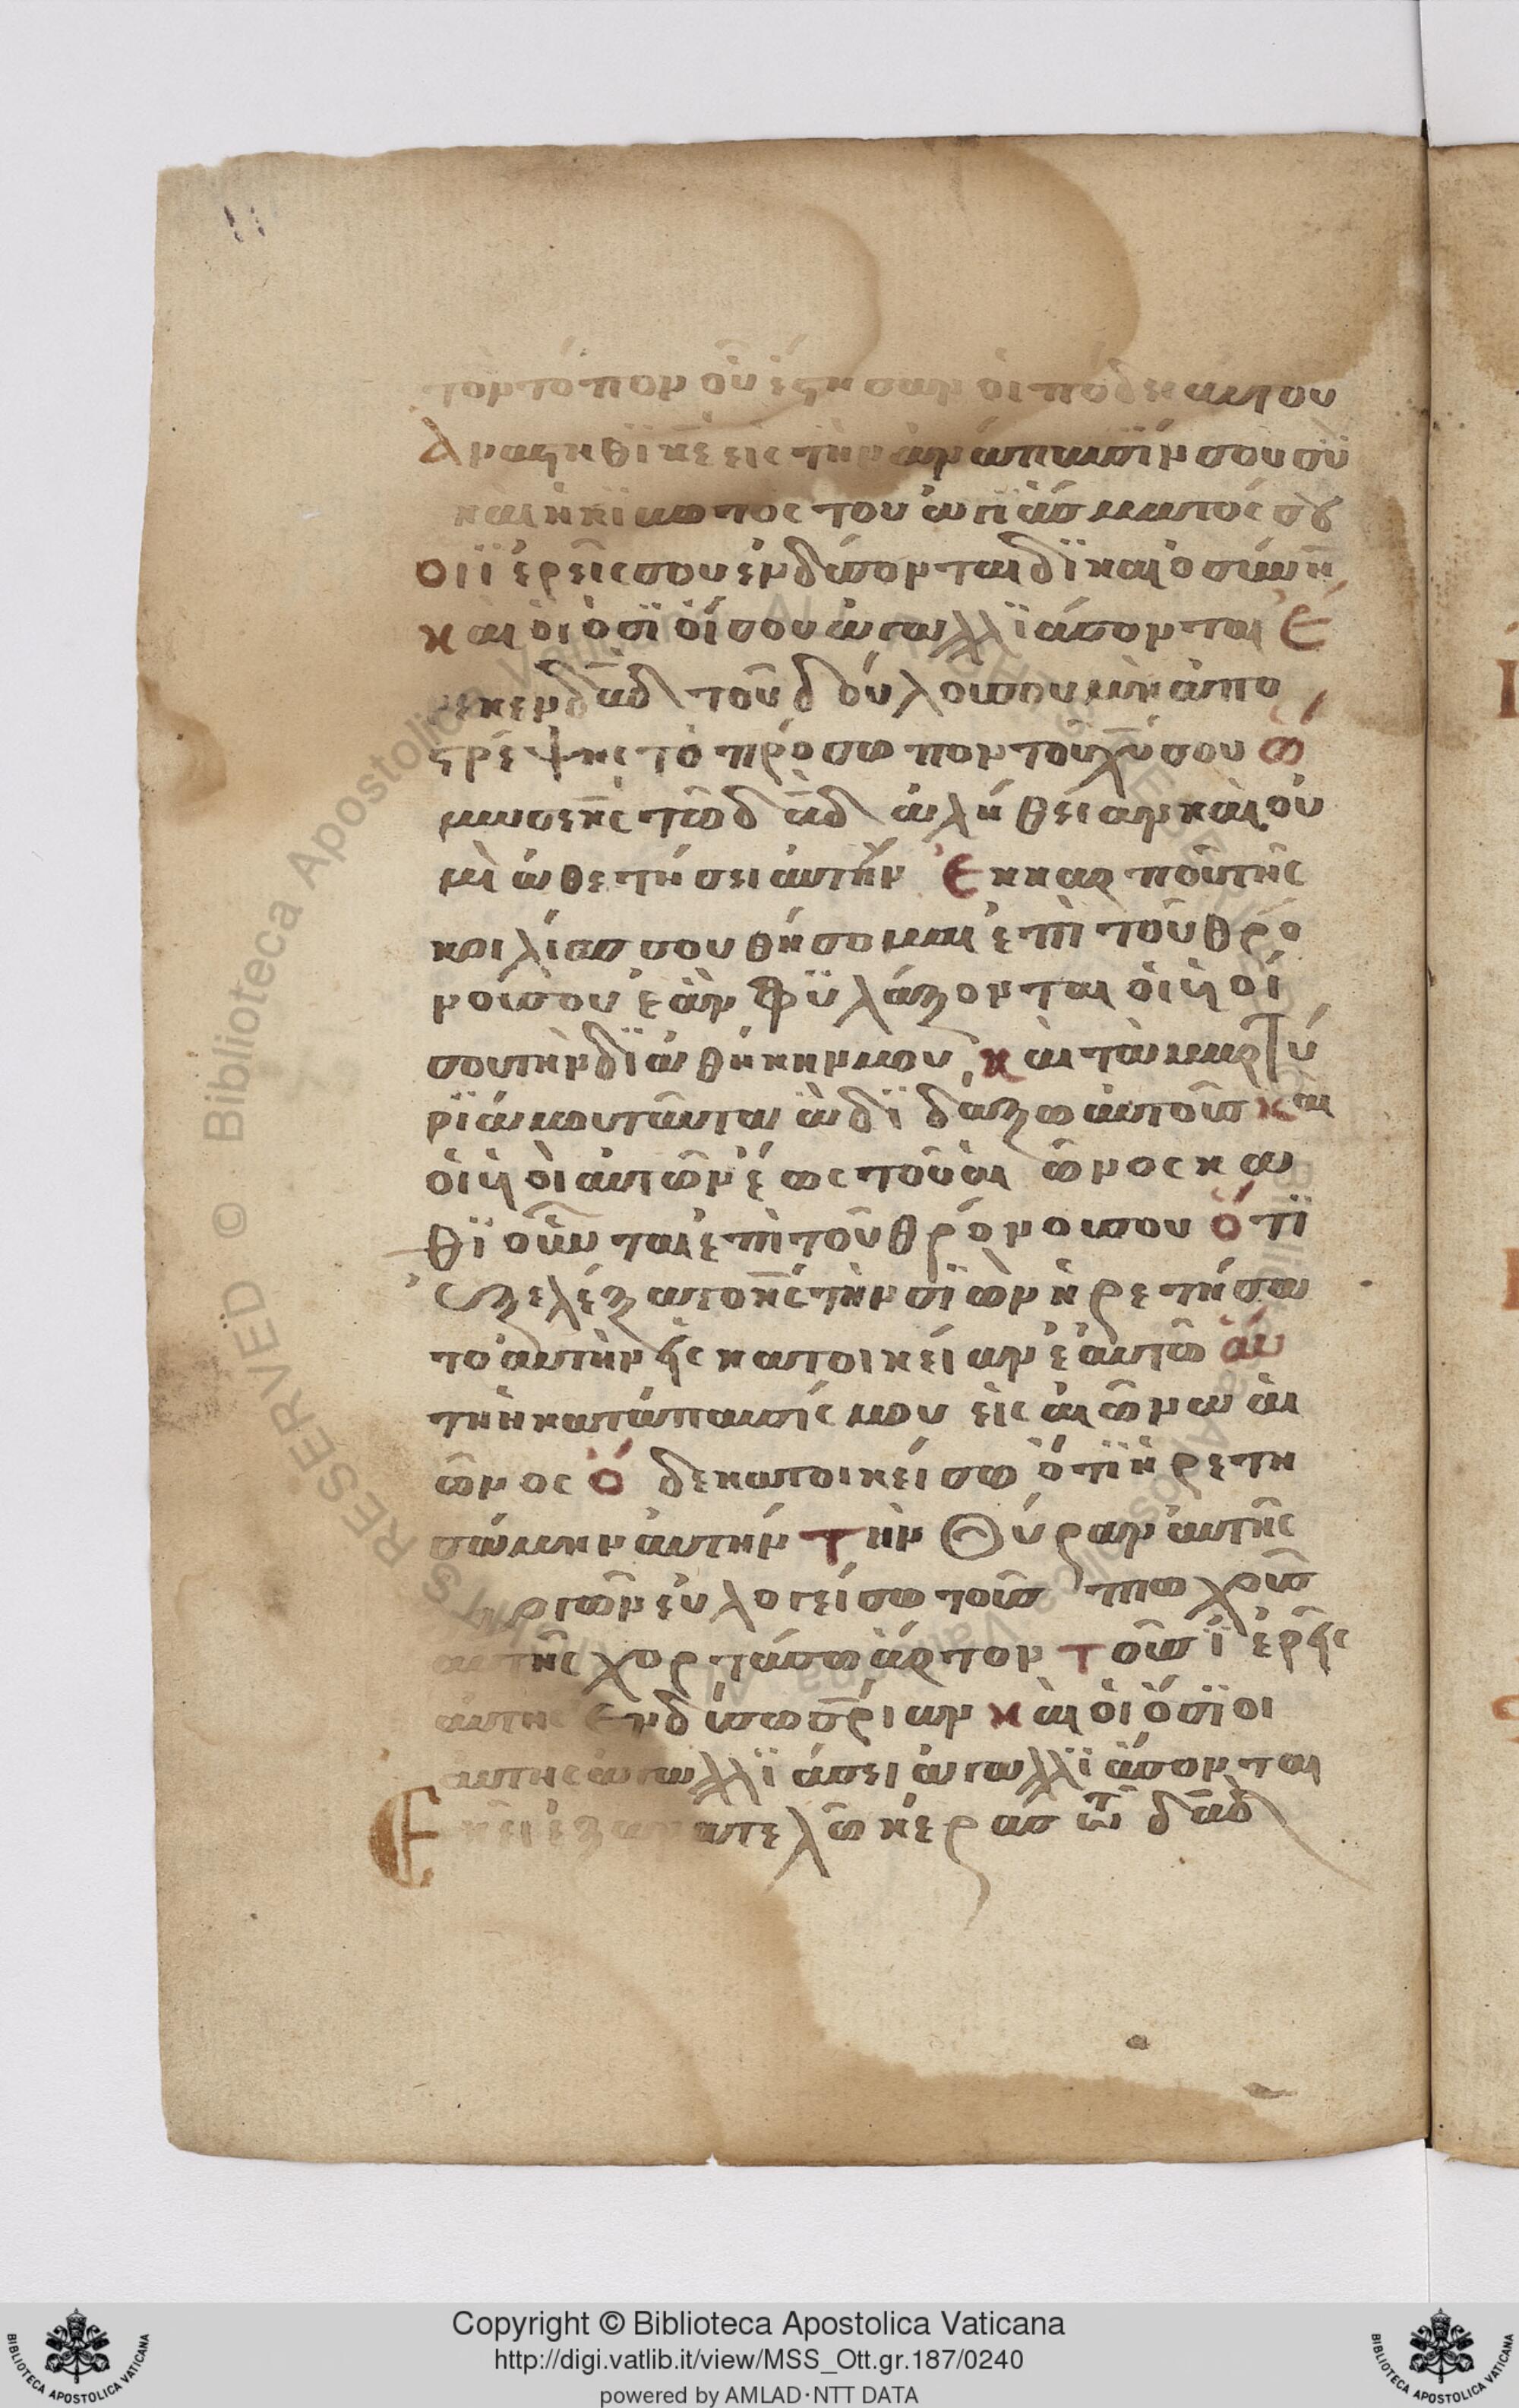 τὸν τόπον οὗ ἔστησαν οἱ πόδες αυτου
Ἀναστηθϊ κε εἰς τὴν ἀνάπαυσΐν σου σὺ
και η κϊβωτος του ἁγϊάσματός σου
οι ϊερεῖς σου ἐνδύσονται δϊκαιοσύνη
και οἱ ὅσϊοί σου ἀγαλλϊάσονται Ἑ
νεκεν δᾱδ τοῦ δούλου σου μὴ ἀπο
στρέψης τὸ πρόσωπον τοῦ χῡ σου ὤ
μωσε κς τῶ δᾱδ ἀλήθειαν και οὐ
μὴ ἀθετήσει ἀυτήν Ἐκ καρποῦ τῆς
κοιλίας σου θήσομαι ἐπὶ τοῦ θρό
νου σου ἐὰν φϋλάξονται ὁι ϋοί
σου την δϊαθήκην μου και τὰ μαρτύ
ρϊά μου ταῦτα ἃ δϊδάξω αυτοῦς και
ὁι ϋοὶ αυτῶν ἕως τοῦ αἰῶνος κα
θϊοῦνται ἐπὶ τοῦ θρόνου σου ὅτϊ
ἐξελέξατο κς τὴν σϊὼν ἡρετήσα
το αυτὴν εἰς κατοικείαν ἑαυτῶ ἅυ
τη ἡ κατάπαυσίς μου εἰς αἰῶνα αἰ
ῶνος ὅδε κατοικείσω ὅτϊ ἡρετη
σάμην αυτήν τὴν Θύραν αυτῆς
ευλογείσω τοῦς πτωχοῦς
αυτῆς χορτάσω ἄρτον τοῦς ϊερεῖς
αυτης ἐνδύσω σρίαν και οἱ ὅσϊοι
αυτης ἀγαλλϊάσει ἀγαλλϊάσονται
Ἐκεῖ ἐξανατελῶ κέρας τῶ δᾱδ
Copyright © Biblioteca Apostolica Vaticana
http://digi.vatlib.it/view/MSS_Ott.gr.187/0240
powered by AMLAD·NTT DATA